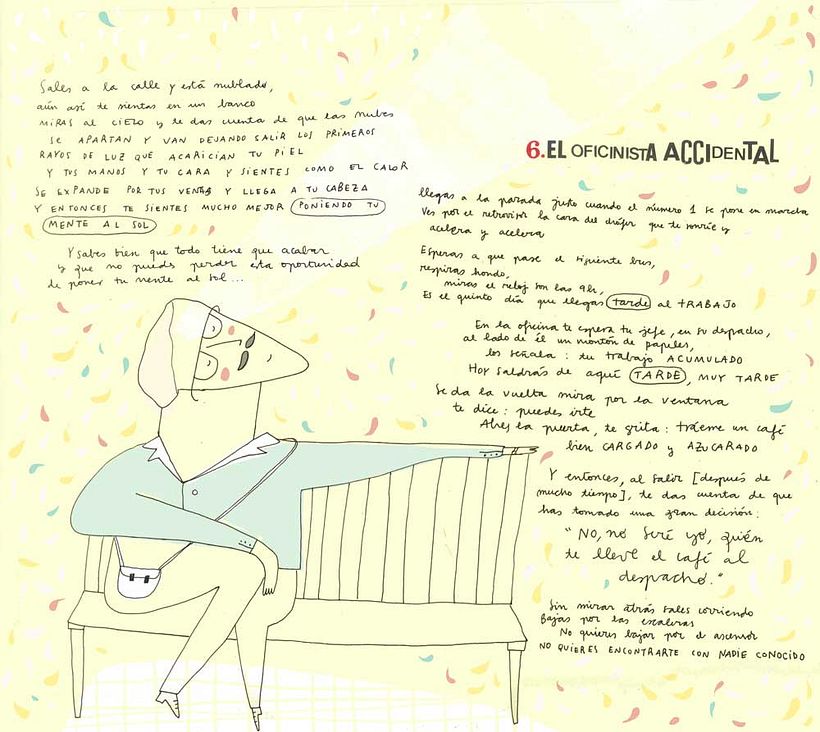 6. EL OFICINISTA ACCIDENTAL
llegas a la parada justo cuando el número 1 se pone en marcha
Ves por el retrovisor la cara del chófer que te sonríe y
acelera y acelera
Esperas a que pase el siguiente bus,
respiras hondo,
miras el reloj son las 9h,
Es el quinto día que llegas tarde al TRABAJO
En la oficina te espera tu jefe, en su despacho,
al lado de él un montón de papeles,
los señala: tu trabajo ACUMULADO
Hoy saldrás de aquí TARDE, MUY TARDE
Se da la vuelta mira por la ventana
te dice: puedes irte
Abres la puerta, te grita: tráeme un café
bien CARGADO y AZUCARADO
Y entonces, al salir [después de
mucho tiempo], te das cuenta de que
has tomado una gran decisión:
"NO, no seré yo, quién
te lleve el café al
despacho."
Sin mirar atrás sales corriendo
Bajas por las escaleras
No quieres bajar por el ascensor
NO QUIERES ENCONTRARTE CON NADIE CONOCIDO
Sales a la calle y está nublado,
aún así te sientas en un banco
MIRAS AL CIELO y te das cuenta de que las nubes
SE APARTAN Y VAN DEJANDO SALIR LOS PRIMEROS
RAYOS DE LUZ QUE ACARICIAN TU PIEL
Y TUS MANOS Y TU CARA Y SIENTES COMO EL CALOR
SE EXPANDE POR TUS VENAS Y LLEGA A TU CABEZA
Y ENTONCES TE SIENTES MUCHO MEJOR PONIENDO TU
MENTE AL SOL
Y sabes bien que todo tiene que acabar
y que no puedes perder esta oportunidad
de poner tu mente al sol...